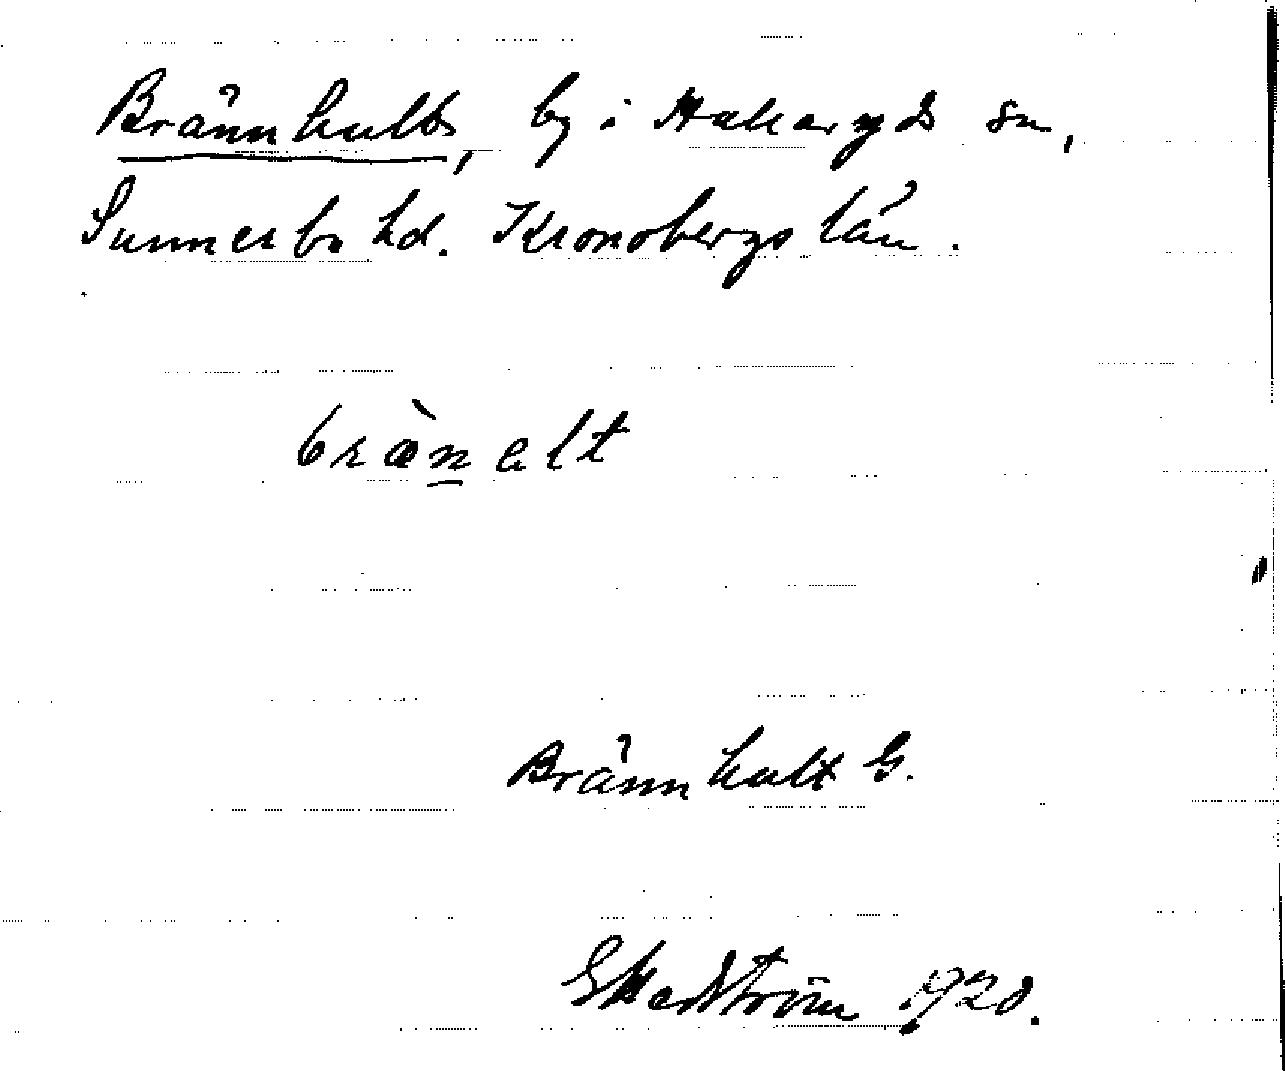 Brännhults, by i Hakaryds sn,
Sunnerbo hd. Kronobergs län.
brànelt
Brännhult G.
G Hedström 1920.